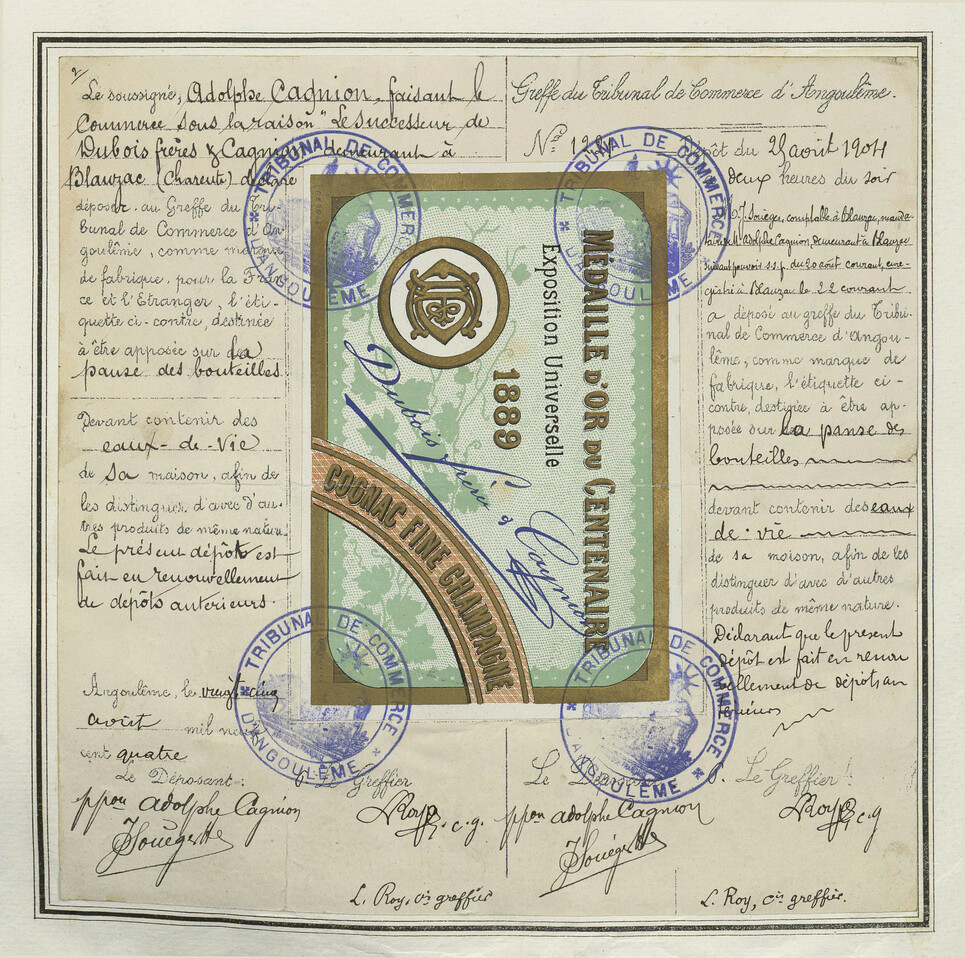 2/
Le soussigné, Adolphe Cagnion, faisant le
Commerce sous la raison "Le successeur de
Dubois frères & Cagnion, demeurant à
Blauzac (Charente) déclare
déposer au Greffe du Tri-
bunal de Commerce d'An-
goulême, comme marque
de fabrique, pour la Fran-
ce et l'Etranger, l'éti-
quette ci-contre, destinée
à être apposée sur la
panse des bouteilles.
Devant contenir des
eaux-de-Vie
de sa maison, afin de
les distinguer d'avec d'au-
tres produits de même nature.
Le présent dépôt est
fait en renouvellement
de dépôts antérieurs.
Angoulême, le vingt cinq
août mil neuf
cent quatre
Le Déposant: Le Greffier
ppon Adolphe Cagnion LRoy c.g.
JSouéger
L. Roy, cis greffier
Greffe du Tribunal de Commerce d'Angoulême.
Dépôt du 25 août 1904
deux heures du soir
J. Souéger, comptable à Blauzac, manda-
Adolphe Cagnion, demeurant à Blauzac
suivant pouvoir s.s.p. du 20 août courant, enre-
gistré à Blauzac le 22 courant
a déposé au greffe du Tribu-
nal de Commerce d'Angou-
lême, comme marque de
fabrique, l'étiquette ci-
contre, destinée à être ap-
posée sur la panse des
bouteilles
devant contenir des eaux
de-vie
de sa maison, afin de les
distinguer d'avec d'autres
produits de même nature.
Déclarant que le présent
dépôt est fait en renou
vellement de dépôts an
térieurs
Le Greffier
ppon Adolphe Cagnion LRoy c.g
JSouéger
L. Roy, cis greffier.
MÉDAILLE D'OR DU CENTENAIRE
Exposition Universelle
1889
Dubois frères & Cagnion
COGNAC FINE CHAMPAGNE
TRIBUNAL DE COMMERCE
D'ANGOULÊME
TRIBUNAL DE COMMERCE
D'ANGOULÊME
TRIBUNAL DE COMMERCE
D'ANGOULÊME
TRIBUNAL DE COMMERCE
D'ANGOULÊME